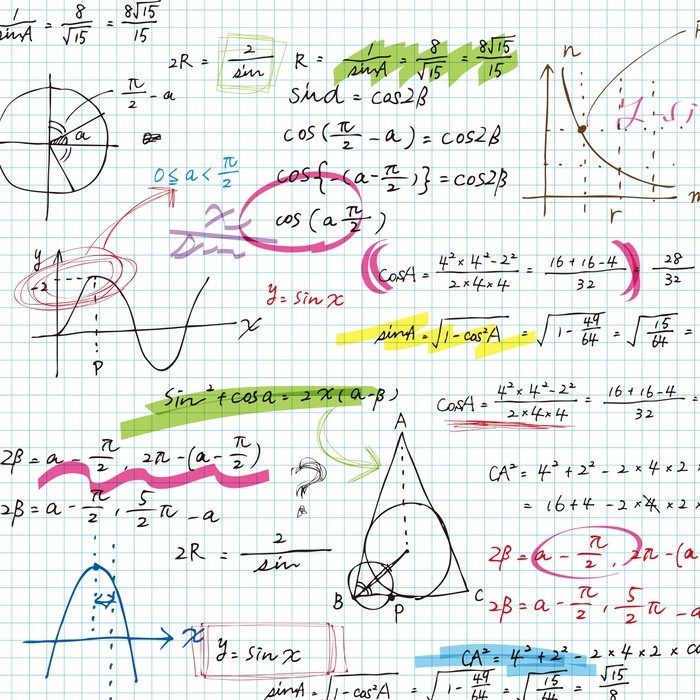 1/sinA = 8/√15 = 8√15/15
2R = 2/sin
R = 1/sinA = 8/√15 = 8√15/15
n
π/2 - a
a
sind = cos2β
cos(π/2 - a) = cos2β
0 ≤ a < π/2
cos{-(a-π/2)} = cos2β
cos(a π/2)
r
y
-2
y = sin x
x
P
cosA = 4²×4²-2²/2×4×4 = 16+16-4/32 = 28/32
sinA = √1-cos²A = √1-49/64 = √15/64 =
sin² + cosa = 2x(a-β)
cosA = 4²×4²-2²/2×4×4 = 16+16-4/32 =
A
2β = a - π/2, 2π - (a - π/2)
?
CA² = 4² + 2² - 2 × 4 × 2
2β = a - π/2, 5/2 π - a
= 16 + 4 - 2 × 4 × 2
2R = 2/sin
2β = a - π/2, 2π - (a
B
P
C
2β = a - π/2, 5/2 π - a
x
y = sin x
CA² = 4² + 2² - 2 × 4 × 2 × co
sinA = √1-cos²A = √1-49/64 = √15/64 = √15/8